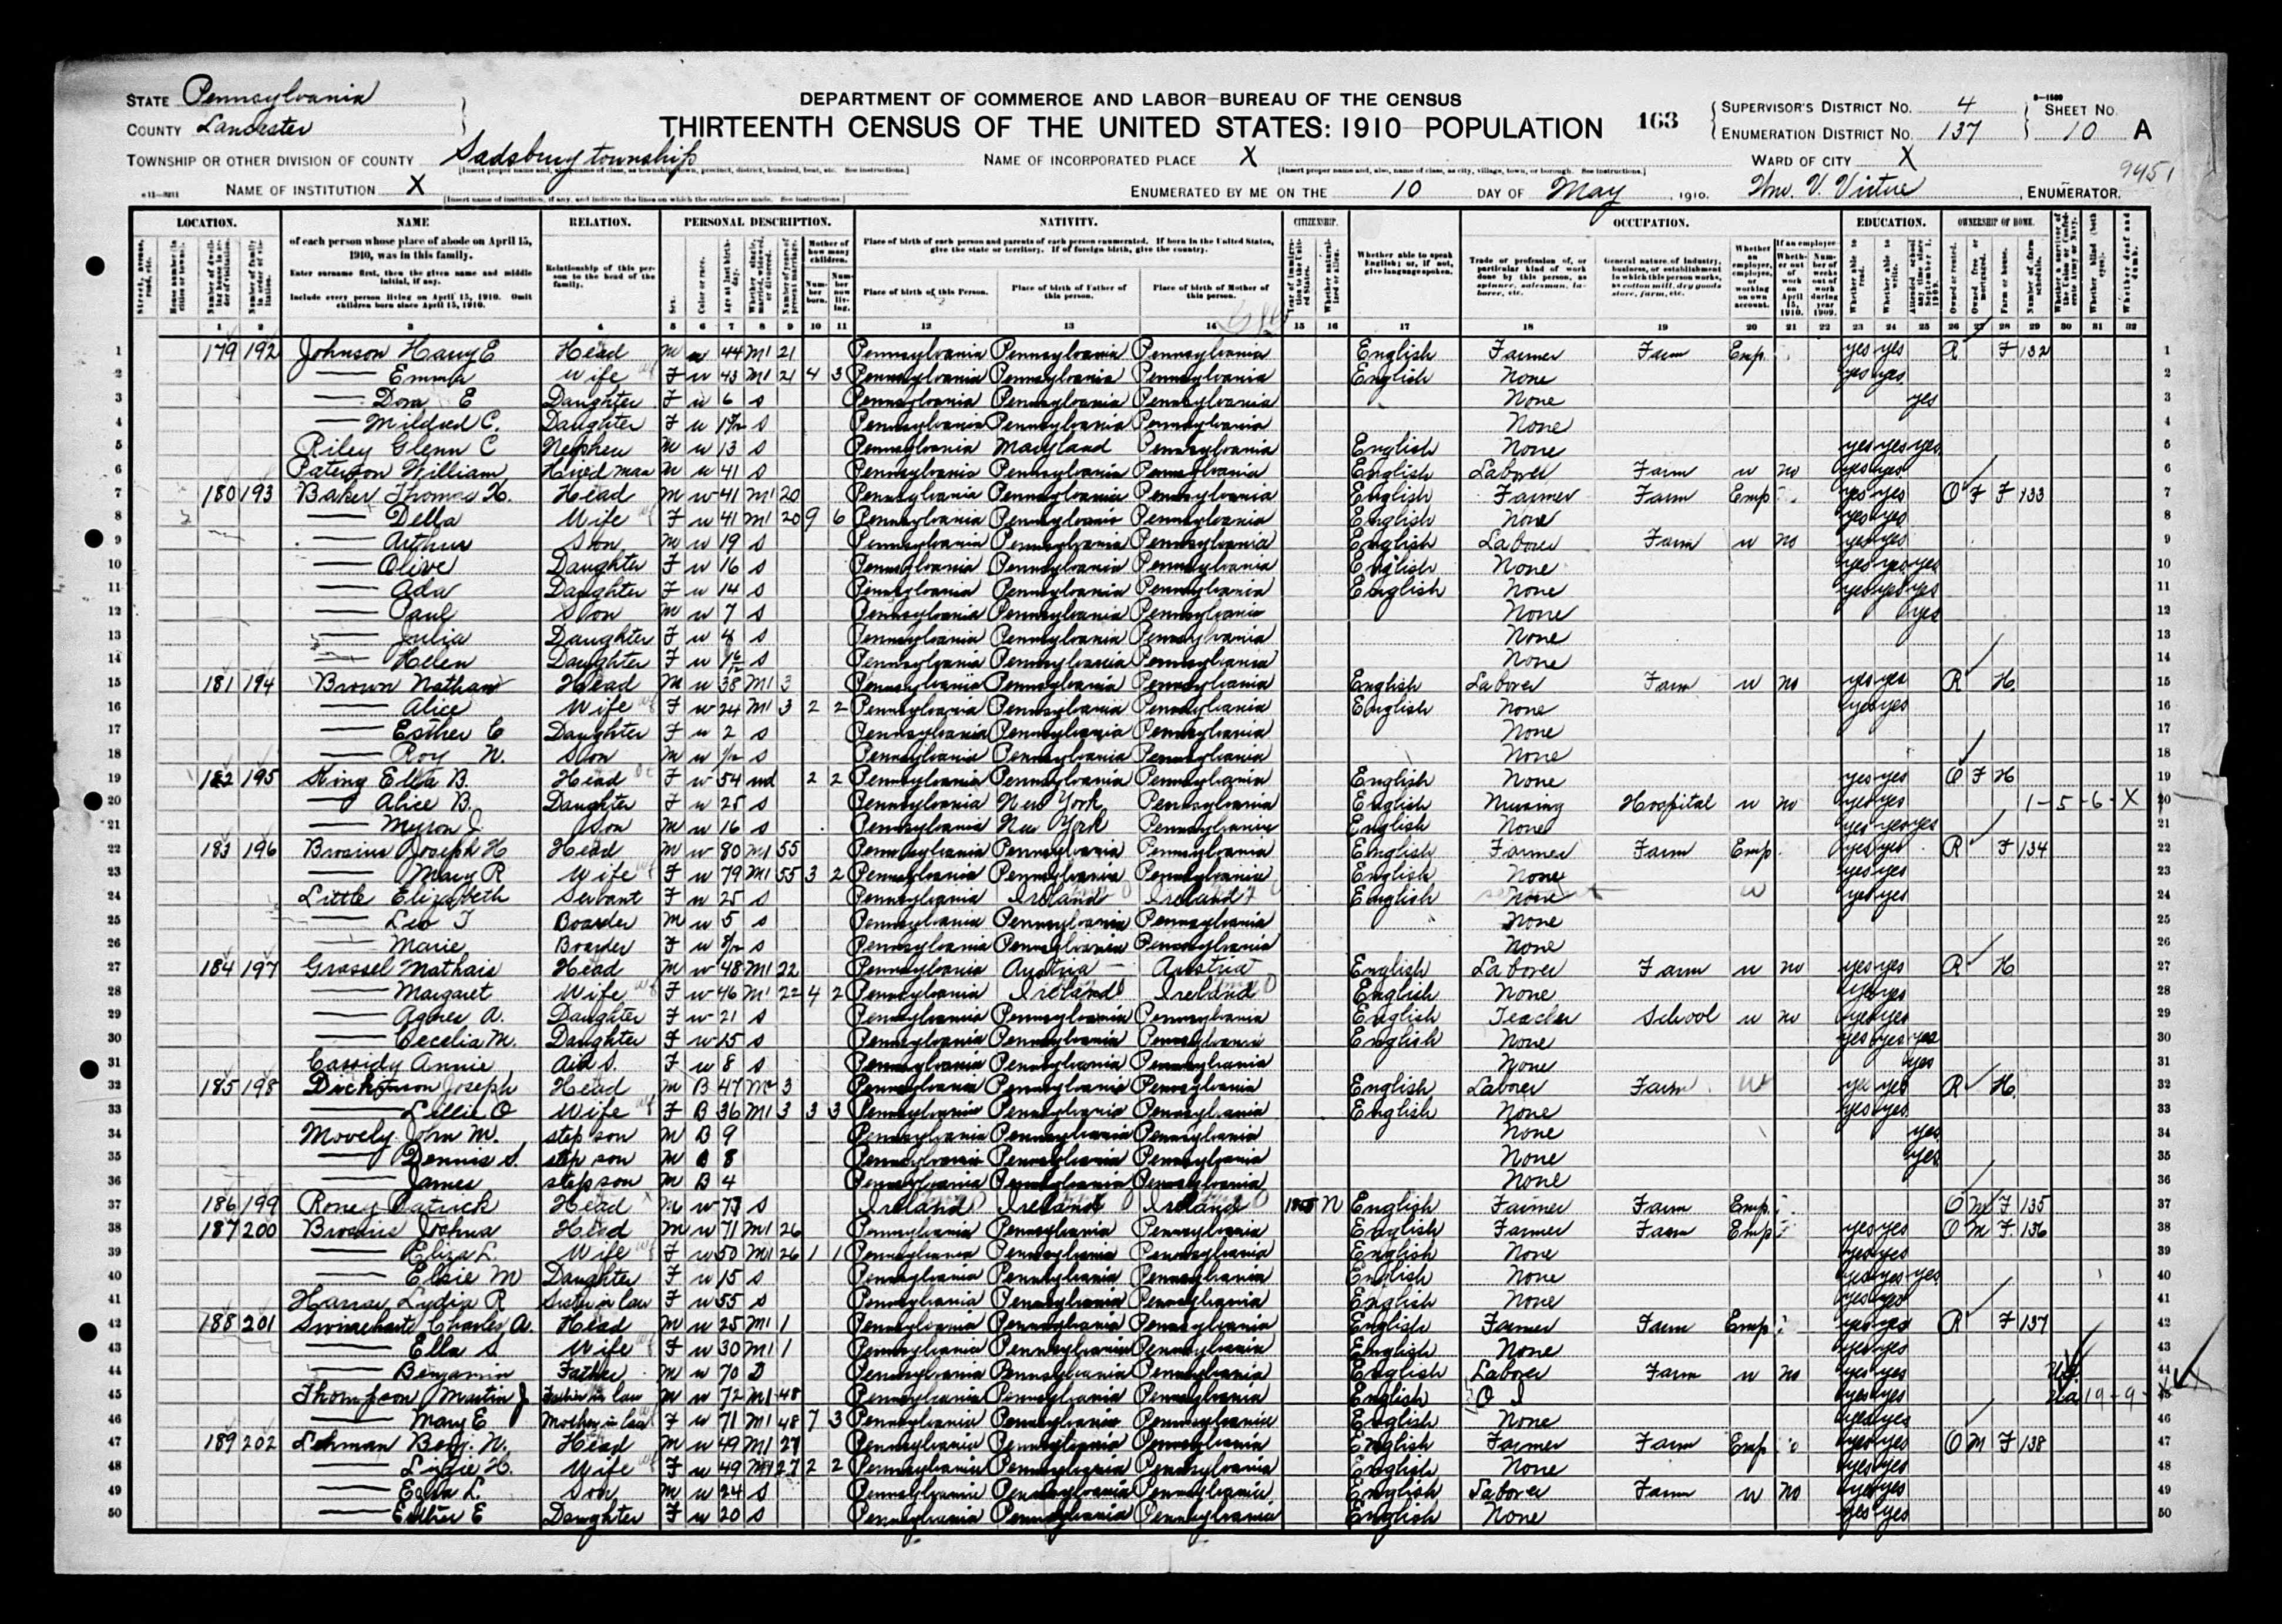 STATE Pennsylvania
COUNTY Lancaster
DEPARTMENT OF COMMERCE AND LABOR—BUREAU OF THE CENSUS
THIRTEENTH CENSUS OF THE UNITED STATES: 1910—POPULATION
163
SUPERVISOR'S DISTRICT NO. 4
ENUMERATION DISTRICT NO. 137
SHEET NO. 10 A
TOWNSHIP OR OTHER DIVISION OF COUNTY Sadsbury township
NAME OF INCORPORATED PLACE X
WARD OF CITY X
9451
NAME OF INSTITUTION X
ENUMERATED BY ME ON THE 10 DAY OF May, 1910. Wm. V. Virtue, ENUMERATOR.
LOCATION. NAME RELATION. PERSONAL DESCRIPTION. NATIVITY. CITIZENSHIP. OCCUPATION. EDUCATION. OWNERSHIP OF HOME.
of each person whose place of abode on April 15, 1910, was in this family.
Enter surname first, then the given name and middle initial, if any.
Include every person living on April 15, 1910. Omit children born since April 15, 1910.
Relationship of this person to the head of the family.
Place of birth of each person and parents of each person enumerated. If born in the United States, give the state or territory. If of foreign birth, give the country.
Place of birth of this Person. Place of birth of Father of this person. Place of birth of Mother of this person.
Whether able to speak English; or, if not, give language spoken.
1 2 3 4 5 6 7 8 9 10 11 12 13 14 15 16 17 18 19 20 21 22 23 24 25 26 27 28 29 30 31 32
1 179 192 Johnson Harry E Head M w 44 M1 21 Pennsylvania Pennsylvania Pennsylvania English Farmer Farm Emp. yes yes R F 132
2 Emma Wife F w 43 M1 21 4 3 Pennsylvania Pennsylvania Pennsylvania English None yes yes
3 Dora E Daughter F w 6 S Pennsylvania Pennsylvania Pennsylvania None yes
4 Mildred C. Daughter F w S Pennsylvania Pennsylvania Pennsylvania None
5 Riley Glenn C Nephew M w 13 S Pennsylvania Maryland Pennsylvania English None yes yes yes
6 Paterson William Hired man M w 41 S Pennsylvania Pennsylvania Pennsylvania English Laborer Farm w no yes yes
7 180 193 Baker Thomas H. Head M w 41 M1 20 Pennsylvania Pennsylvania Pennsylvania English Farmer Farm Emp yes yes O F F 133
8 Della Wife F w 41 M1 20 9 6 Pennsylvania Pennsylvania Pennsylvania English None yes yes
9 Arthur Son M w 19 S Pennsylvania Pennsylvania Pennsylvania English Laborer Farm w no yes yes
10 Olive Daughter F w 16 S Pennsylvania Pennsylvania Pennsylvania English None yes yes yes
11 Ada Daughter F w 14 S Pennsylvania Pennsylvania Pennsylvania English None yes yes yes
12 Paul Son M w 7 S Pennsylvania Pennsylvania Pennsylvania None yes
13 Julia Daughter F w 4 S Pennsylvania Pennsylvania Pennsylvania None
14 Helen Daughter F w 1 6/12 S Pennsylvania Pennsylvania Pennsylvania None
15 181 194 Brown Nathan Head M w 38 M1 3 Pennsylvania Pennsylvania Pennsylvania English Laborer Farm w no yes yes R H
16 Alice Wife F w 24 M1 3 2 2 Pennsylvania Pennsylvania Pennsylvania English None yes yes
17 Esther C Daughter F w 2 S Pennsylvania Pennsylvania Pennsylvania None
18 Roy N. Son M w S Pennsylvania Pennsylvania Pennsylvania None
19 182 195 King Ella B. Head F w 54 wd 2 2 Pennsylvania Pennsylvania Pennsylvania English None yes yes O F H
20 Alice B. Daughter F w 25 S Pennsylvania New York Pennsylvania English Nursing Hospital w no yes yes 1-5-6-X
21 Myron J. Son M w 16 S Pennsylvania New York Pennsylvania English None yes yes yes
22 183 196 Brosius Joseph H Head M w 80 M1 55 Pennsylvania Pennsylvania Pennsylvania English Farmer Farm Emp. yes yes R F 134
23 Mary R Wife F w 79 M1 55 3 2 Pennsylvania Pennsylvania Pennsylvania English None yes yes
24 Little Elizabeth Servant F w 25 S Pennsylvania Ireland Ireland English None w yes yes
25 Leo T Boarder M w 5 S Pennsylvania Pennsylvania Pennsylvania None
26 Marie Boarder F w S Pennsylvania Pennsylvania Pennsylvania None
27 184 197 Grassel Mathais Head M w 48 M1 22 Pennsylvania Austria Austria English Laborer Farm w no yes yes R H
28 Margaret Wife F w 46 M1 22 4 2 Pennsylvania Ireland Ireland English None yes yes
29 Agnes A. Daughter F w 21 S Pennsylvania Pennsylvania Pennsylvania English Teacher School w no yes yes
30 Cecelia M. Daughter F w 15 S Pennsylvania Pennsylvania Pennsylvania English None yes yes yes
31 Cassidy Annie F w 8 S Pennsylvania Pennsylvania Pennsylvania None yes
32 185 198 Dickinson Joseph Head M B 47 3 Pennsylvania Pennsylvania Pennsylvania English Laborer Farm w yes yes R H
33 Lillie O Wife F B 36 M1 3 3 3 Pennsylvania Pennsylvania Pennsylvania English None yes yes
34 Movely John M. step son M B 9 Pennsylvania Pennsylvania Pennsylvania None yes
35 Dennis S. step son M B 8 Pennsylvania Pennsylvania Pennsylvania None yes
36 James step son M B 4 Pennsylvania Pennsylvania Pennsylvania None
37 186 199 Roney Patrick Head M w 73 S Ireland Ireland Ireland N English Farmer Farm Emp. O M F 135
38 187 200 Brosius Joshua Head M w 71 M1 26 Pennsylvania Pennsylvania Pennsylvania English Farmer Farm Emp yes yes O M F 136
39 Eliza L. Wife F w 50 M1 26 1 1 Pennsylvania Pennsylvania Pennsylvania English None yes yes
40 Elsie M Daughter F w 15 S Pennsylvania Pennsylvania Pennsylvania English None yes yes yes
41 Lydia R Sister in law F w 55 S Pennsylvania Pennsylvania Pennsylvania English None yes yes
42 188 201 Swinehart Charles A. Head M w 25 M1 1 Pennsylvania Pennsylvania Pennsylvania English Farmer Farm Emp yes yes R F 137
43 Ella S Wife F w 30 M1 1 Pennsylvania Pennsylvania Pennsylvania English None yes yes
44 Benjamin Father M w 70 D Pennsylvania Pennsylvania Pennsylvania English Laborer Farm w no yes yes
45 Thompson Martin J Father in law M w 72 M1 48 Pennsylvania Pennsylvania Pennsylvania English O I yes yes ua 19-9-
46 Mary E Mother in law F w 71 M1 48 7 3 Pennsylvania Pennsylvania Pennsylvania English None yes yes
47 189 202 Lehman Benj. N. Head M w 49 M1 27 Pennsylvania Pennsylvania Pennsylvania English Farmer Farm Emp yes yes O M F 138
48 Lizzie H. Wife F w 49 M1 27 2 2 Pennsylvania Pennsylvania Pennsylvania English None yes yes
49 Ezra L. Son M w 24 S Pennsylvania Pennsylvania Pennsylvania English Laborer Farm w no yes yes
50 Esther E Daughter F w 20 S Pennsylvania Pennsylvania Pennsylvania English None yes yes